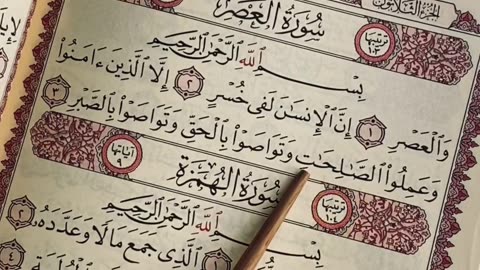 الجزء الثلاثون
ترتيبها ١٠٣ سُورَةُ العَصْرِ
بِسْمِ ٱللَّهِ ٱلرَّحْمَٰنِ ٱلرَّحِيمِ
وَٱلْعَصْرِ ١ إِنَّ ٱلْإِنسَٰنَ لَفِى خُسْرٍ ٢ إِلَّا ٱلَّذِينَ ءَامَنُوا۟
وَعَمِلُوا۟ ٱلصَّٰلِحَٰتِ وَتَوَاصَوْا۟ بِٱلْحَقِّ وَتَوَاصَوْا۟ بِٱلصَّبْرِ ٣
ترتيبها ١٠٤ سُورَةُ الهُمَزَةِ آياتها ٩
بِسْمِ ٱللَّهِ ٱلرَّحْمَٰنِ ٱلرَّحِيمِ
١ ٱلَّذِى جَمَعَ مَالًا وَعَدَّدَهُۥ ٢
٤